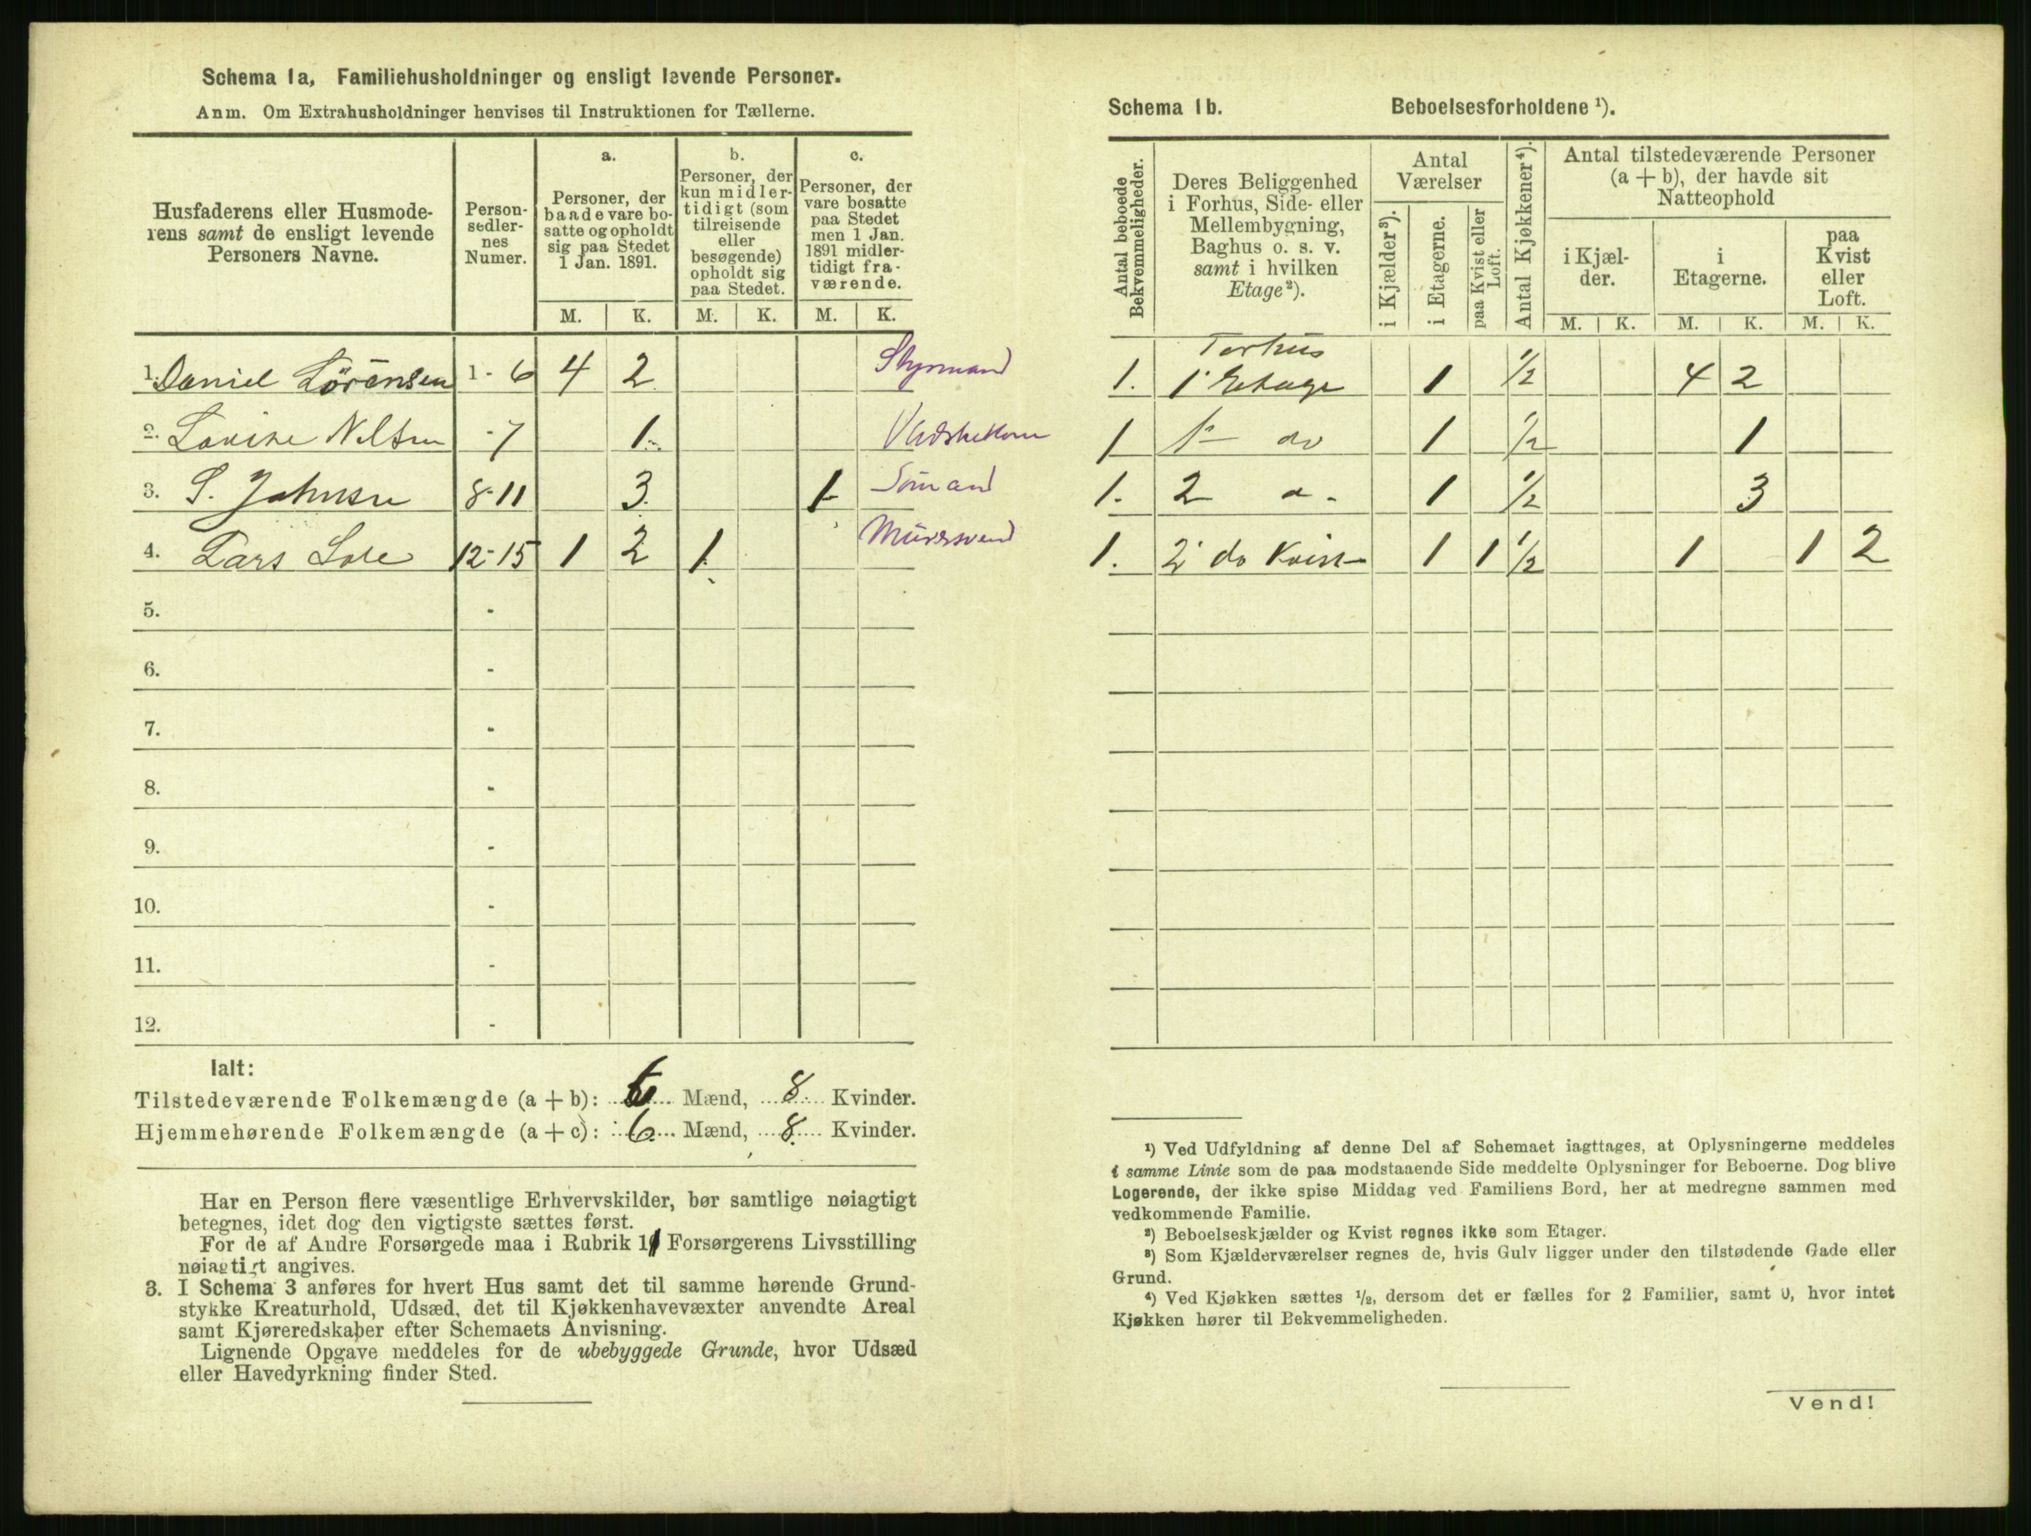 Schema 1a, Familiehusholdninger og ensligt levende Personer.
Anm. Om Extrahusholdninger henvises til Instruktionen for Tællerne.
Husfaderens eller Husmode-
rens samt de ensligt levende
Personers Navne.
Person-
sedler-
nes
Numer.
a.
Personer, der
baade vare bo-
satte og opholdt
sig paa Stedet
1 Jan. 1891.
b.
Personer, der
kun midler-
tidigt (som
tilreisende
eller
besøgende)
opholdt sig
paa Stedet.
c.
Personer, der
vare bosatte
paa Stedet
men 1 Jan.
1891 midler-
tidigt fra-
værende.
M. K. M. K. M. K.
1. Daniel Sörensen 1 - 6 4 2 Styrmand
2. Lovise Nelsen - 7 1
3. S. Johnsen 8 - 11 3 1 Sömand
4. Lars 12 - 15 1 2 1 Murersvend
5. -
6. -
7. -
8. -
9. -
10. -
11. -
12. -
Ialt:
Tilstedeværende Folkemængde (a + b): 6 Mænd, 8 Kvinder.
Hjemmehørende Folkemængde (a + c): 6 Mænd, 8 Kvinder.
Har en Person flere væsentlige Erhvervskilder, bør samtlige nøiagtigt
betegnes, idet dog den vigtigste sættes først.
For de af Andre Forsørgede maa i Rubrik 11 Forsørgerens Livsstilling
nøiagtigt angives.
3. I Schema 3 anføres for hvert Hus samt det til samme hørende Grund-
stykke Kreaturhold, Udsæd, det til Kjøkkenhavevæxter anvendte Areal
samt Kjøreredskaber efter Schemaets Anvisning.
Lignende Opgave meddeles for de ubebyggede Grunde, hvor Udsæd
eller Havedyrkning finder Sted.
Schema 1b. Beboelsesforholdene ¹).
Antal beboede
Bekvemmeligheder.
Deres Beliggenhed
i Forhus, Side- eller
Mellembygning,
Baghus o. s. v.
samt i hvilken
Etage²).
Antal
Værelser
i Kjælder³).
i Etagerne.
paa Kvist eller
Loft.
Antal Kjøkkener⁴).
Antal tilstedeværende Personer
(a + b), der havde sit
Natteophold
i Kjæl-
der.
i
Etagerne.
paa
Kvist
eller
Loft.
M. K. M. K. M. K.
1. Forhus
1' Etage 1 1/2 4 2
1 1 - do 1 1/2 1
1. 2 1 1/2 3
1. 2' do Kvist 1 1 1/2 1 1 2
¹) Ved Udfyldning af denne Del af Schemaet iagttages, at Oplysningerne meddeles
i samme Linie som de paa modstaaende Side meddelte Oplysninger for Beboerne. Dog blive
Logerende, der ikke spise Middag ved Familiens Bord, her at medregne sammen med
vedkommende Familie.
²) Beboelseskjælder og Kvist regnes ikke som Etager.
³) Som Kjælderværelser regnes de, hvis Gulv ligger under den tilstødende Gade eller
Grund.
⁴) Ved Kjøkken sættes 1/2, dersom det er fælles for 2 Familier, samt 0, hvor intet
Kjøkken hører til Bekvemmeligheden.
Vend!